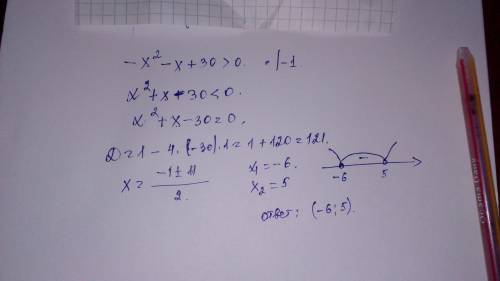 -x² - x + 30 > 0. •/-1.
x² + x - 30 < 0.
x² + x - 30 = 0.
D = 1 - 4 · (-30) · 1 = 1 + 120 = 121.
x = (-1 ± 11) / 2. x₁ = -6. x₂ = 5
- -6 5
ответ: (-6; 5).